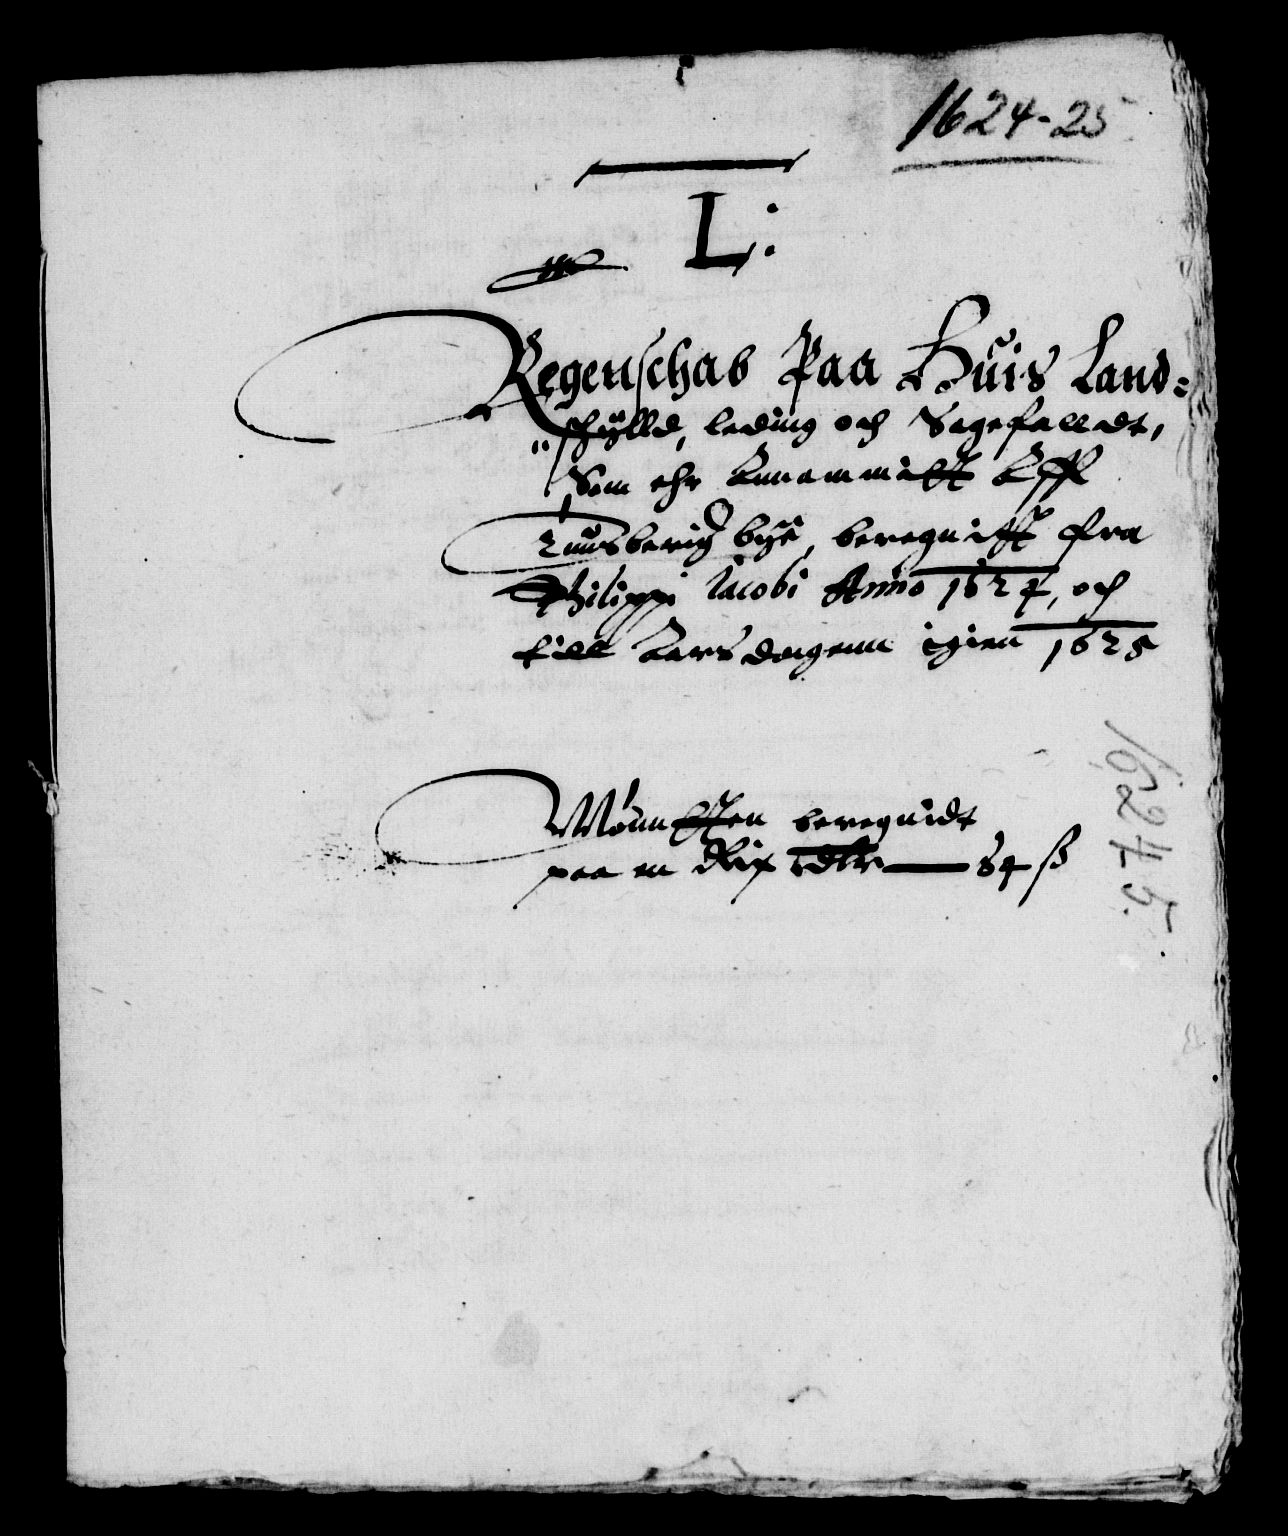 1624-25
L:
Regenschab Paa Huis Land=
schylld, leding och Sagefalldt,
Som ehr Annammitt Aff
Tunsberig bye, beregnitt fra
Philippi Jacobi Anno 1624, och
till Aars dagenn igien 1625
Mønntten beregnidt
paa en Rix dlr — 84 ß
1624 5.